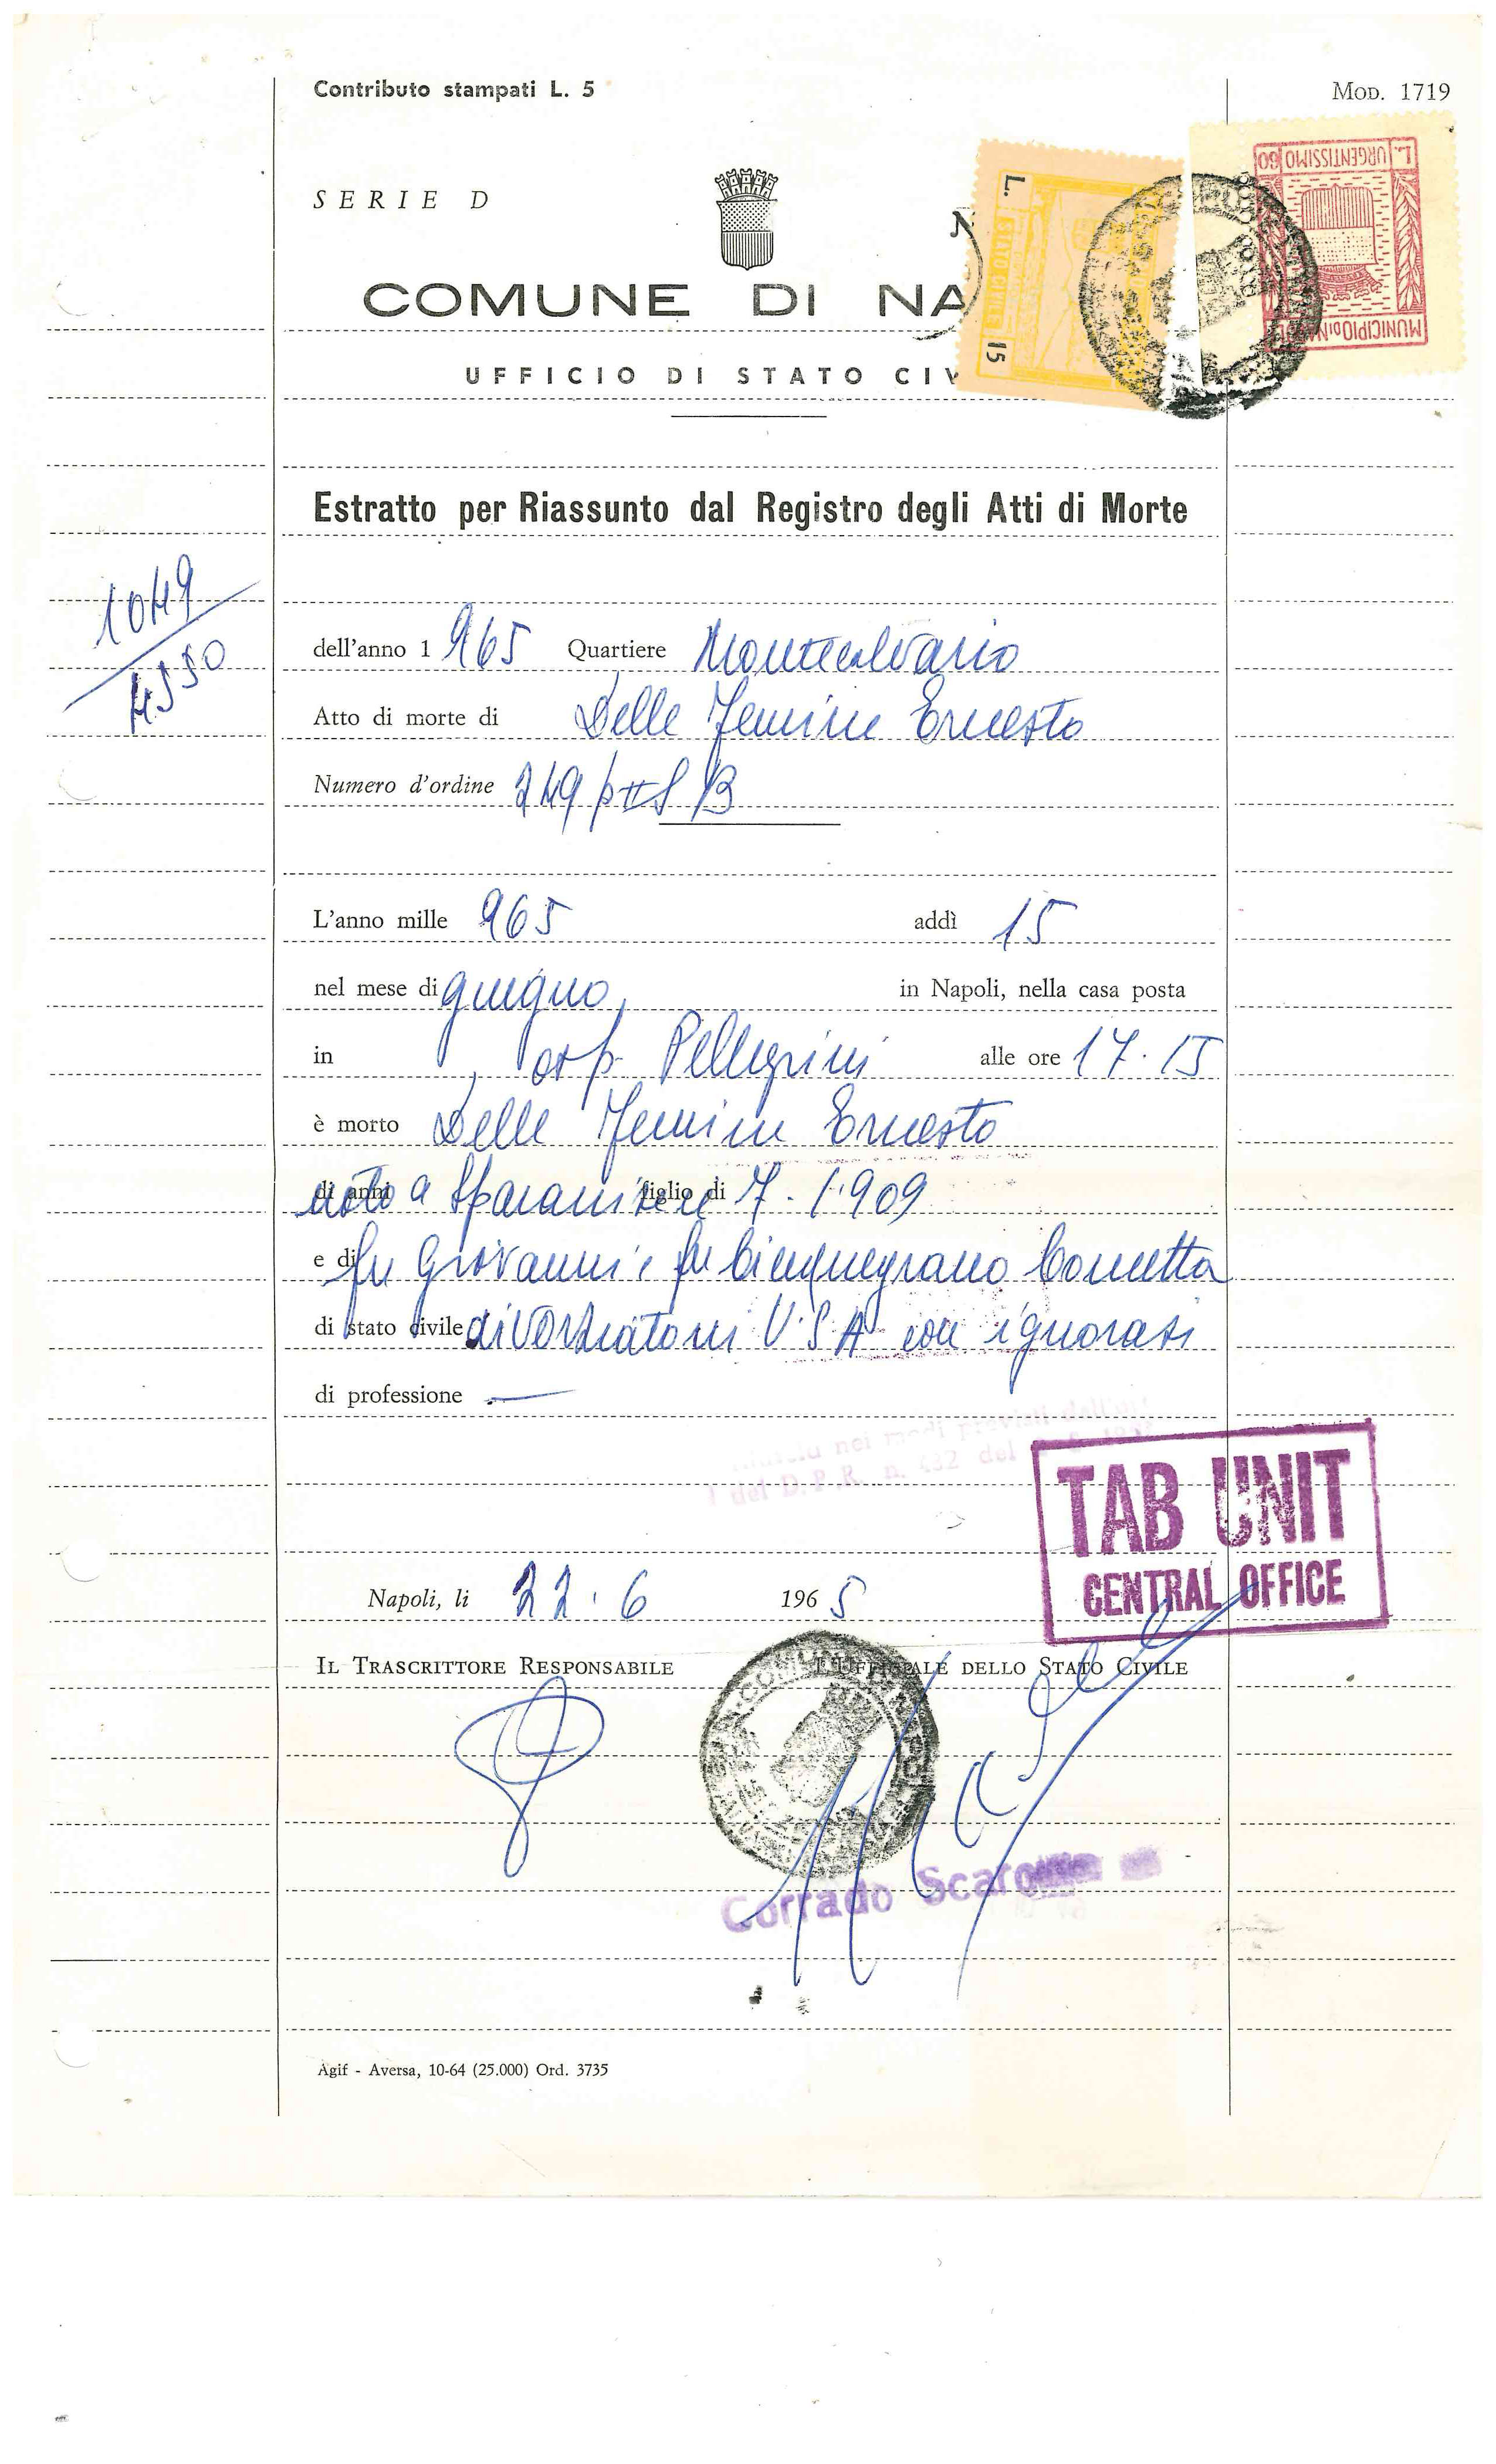 Contributo stampati L. 5
MOD. 1719
SERIE D
L. URGENTISSIMO 60
MUNICIPIO DI NA
L. STATO CIVILE 15
COMUNE DI NA
UFFICIO DI STATO CIV
Estratto per Riassunto dal Registro degli Atti di Morte
1049
4550
dell'anno 1 965 Quartiere Montecalvario
Atto di morte di Delle Femine Ernesto
Numero d'ordine 249 p II S B
L'anno mille 965 addì 15
nel mese di giugno in Napoli, nella casa posta
in osp. Pellegrini alle ore 17.15
è morto Delle Femine Ernesto
di anni figlio di
nato a Sparanise 7.1.909
e di fu Giovanni e fu Cinquegrano Concetta
di stato civile divorziato in U.S.A con ignorasi
di professione —
nei modi previsti dall'art
del D.P.R. n. 432 del
TAB UNIT
CENTRAL OFFICE
Napoli, li 22.6 1965
IL TRASCRITTORE RESPONSABILE
L'UFFICIALE DELLO STATO CIVILE
Corrado
Agif - Aversa, 10-64 (25.000) Ord. 3735